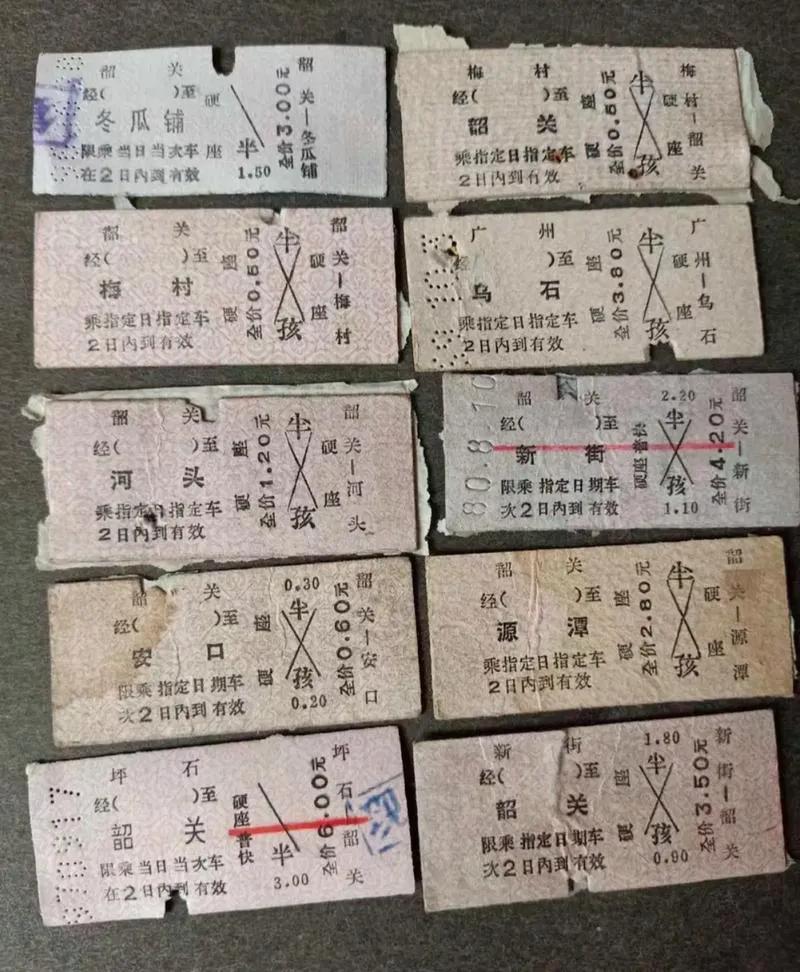 韶 关
经( )至
冬瓜铺
限乘当日当次车
在2日内到有效
硬座
半
1.50
全价3.00元
韶关—冬瓜铺
梅 村
经( )至
韶 关
乘指定日指定车
2日内到有效
硬座
全价0.50元
半
孩
硬座
梅村—韶关
韶 关
经( )至
梅 村
乘指定日指定车
2日内到有效
硬座
全价0.50元
半
孩
硬座
韶关—梅村
广 州
经( )至
乌 石
乘指定日指定车
2日内到有效
硬座
全价3.80元
半
孩
硬座
广州—乌石
韶 关
经( )至
河 头
乘指定日指定车
2日内到有效
硬座
全价1.20元
半
孩
硬座
韶关—河头
80.8.10
韶 关
经( )至
新 街
限乘指定日期车
次2日内到有效
硬座普快
2.20
半
孩
1.10
全价4.20元
韶关—新街
韶 关
经( )至
安 口
限乘指定日期车
次2日内到有效
硬座
0.30
半
孩
0.20
全价0.60元
韶关—安口
韶 关
经( )至
源 潭
乘指定日指定车
2日内到有效
硬座
全价2.80元
半
孩
硬座
韶关—源潭
坪 石
经( )至
韶 关
限乘当日当次车
在2日内到有效
硬座普快
半
3.00
全价6.00元
坪石—韶关
新 街
经( )至
韶 关
限乘指定日期车
次2日内到有效
硬座
1.80
半
孩
0.90
全价3.50元
新街—韶关